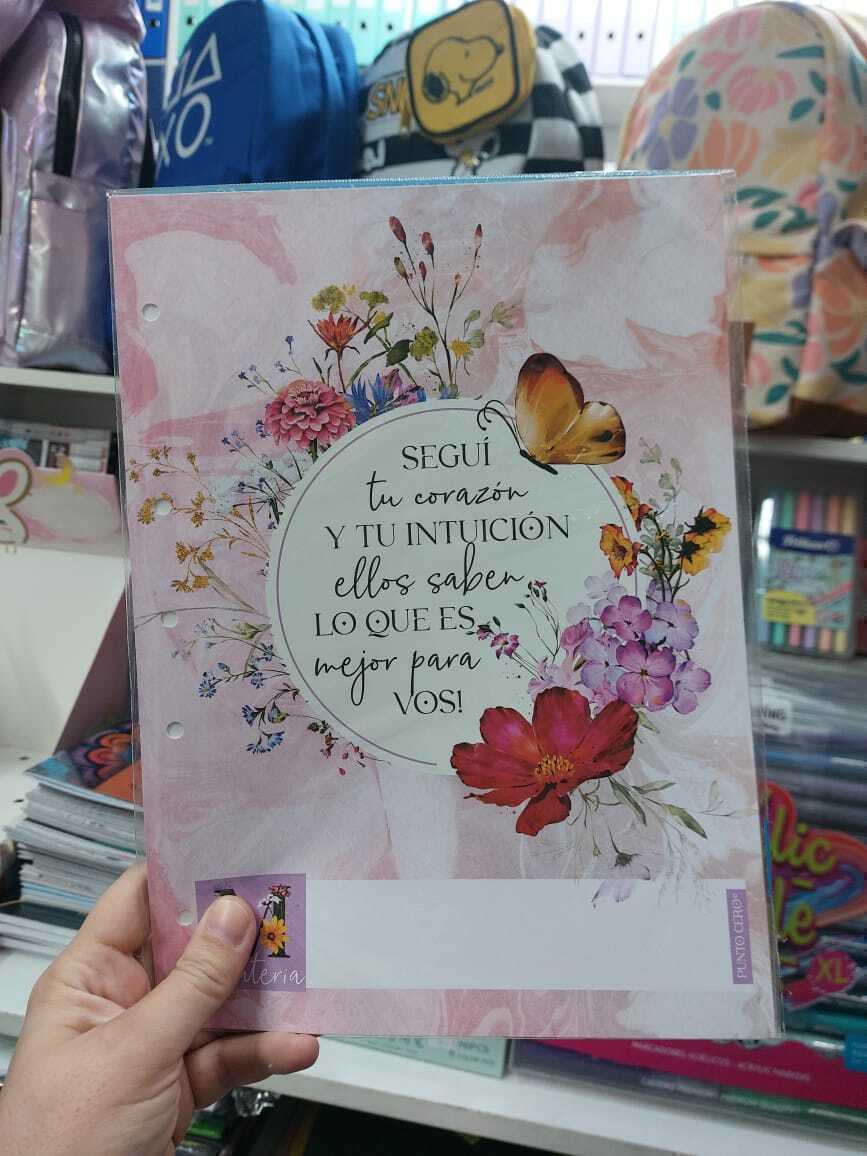 SEGUÍ
tu corazón
Y TU INTUICIÓN
ellos saben
LO QUE ES
mejor para
VOS!
PUNTO CERO®
XL
MARCADORES ACRÍLICOS - ACRYLIC MARKERS